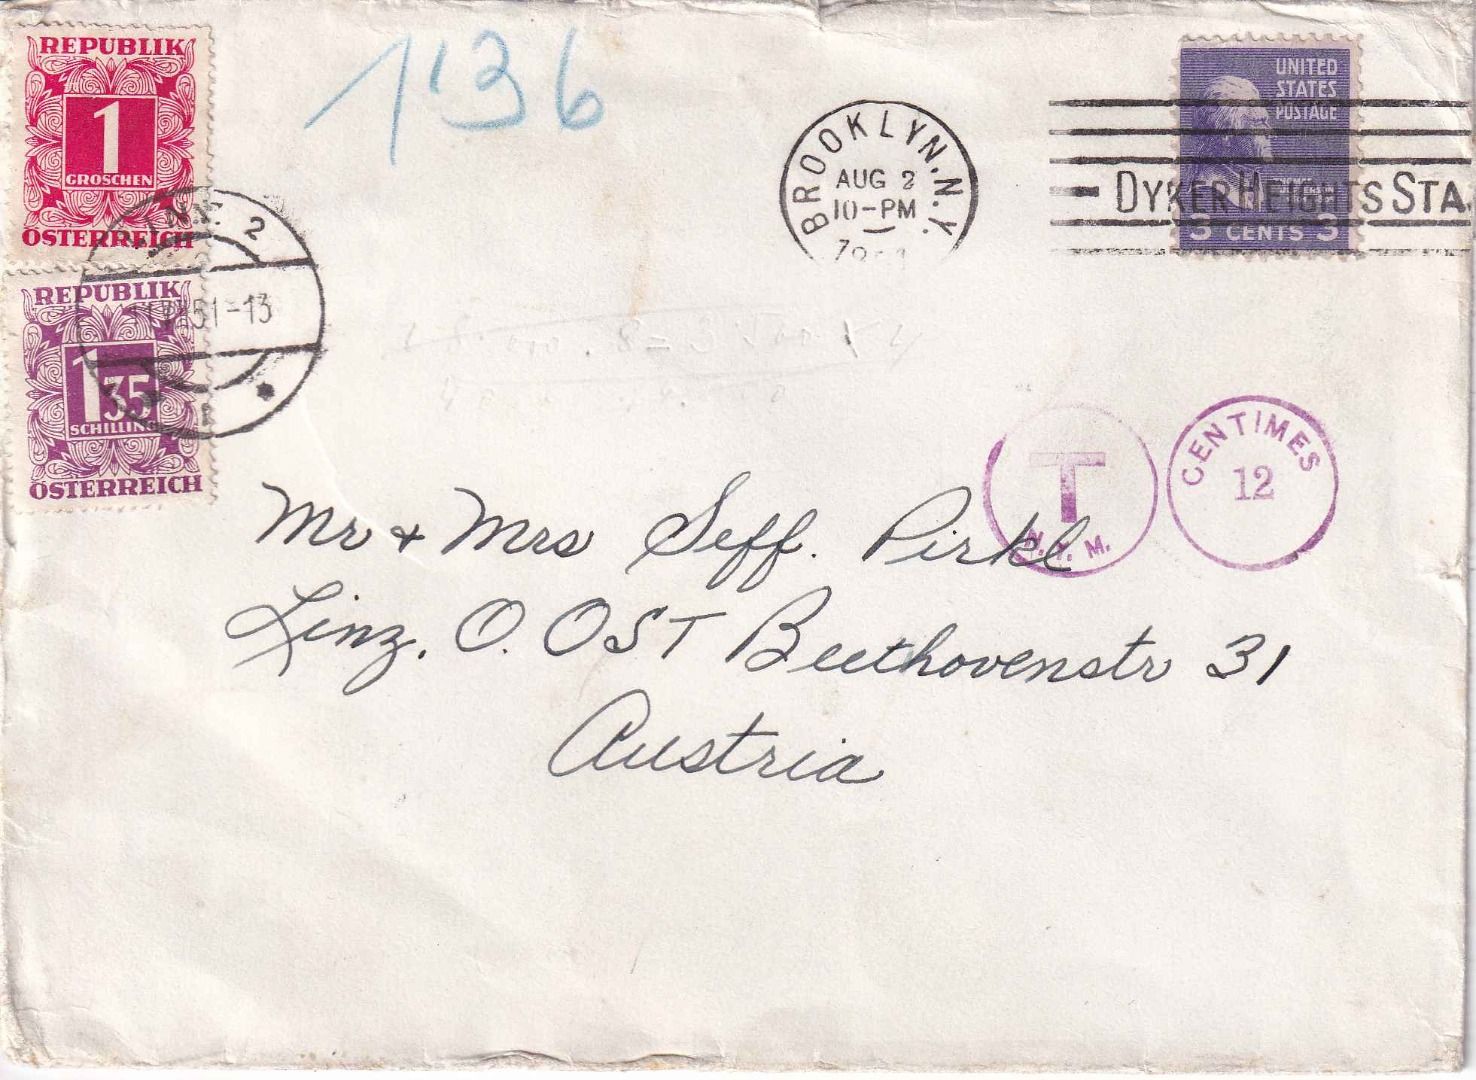 REPUBLIK
1
GROSCHEN
ÖSTERREICH
REPUBLIK
1 35
SCHILLING
ÖSTERREICH
2
51-13
1'36
BROOKLYN, N.Y.
AUG 2
10-PM
UNITED
STATES
POSTAGE
3 CENTS 3
DYKER HEIGHTS STA
T
N.Y.M.
CENTIMES
12
Mr + Mrs Seff. Pirkl
Linz, O. OST Beethovenstr 31
Austria